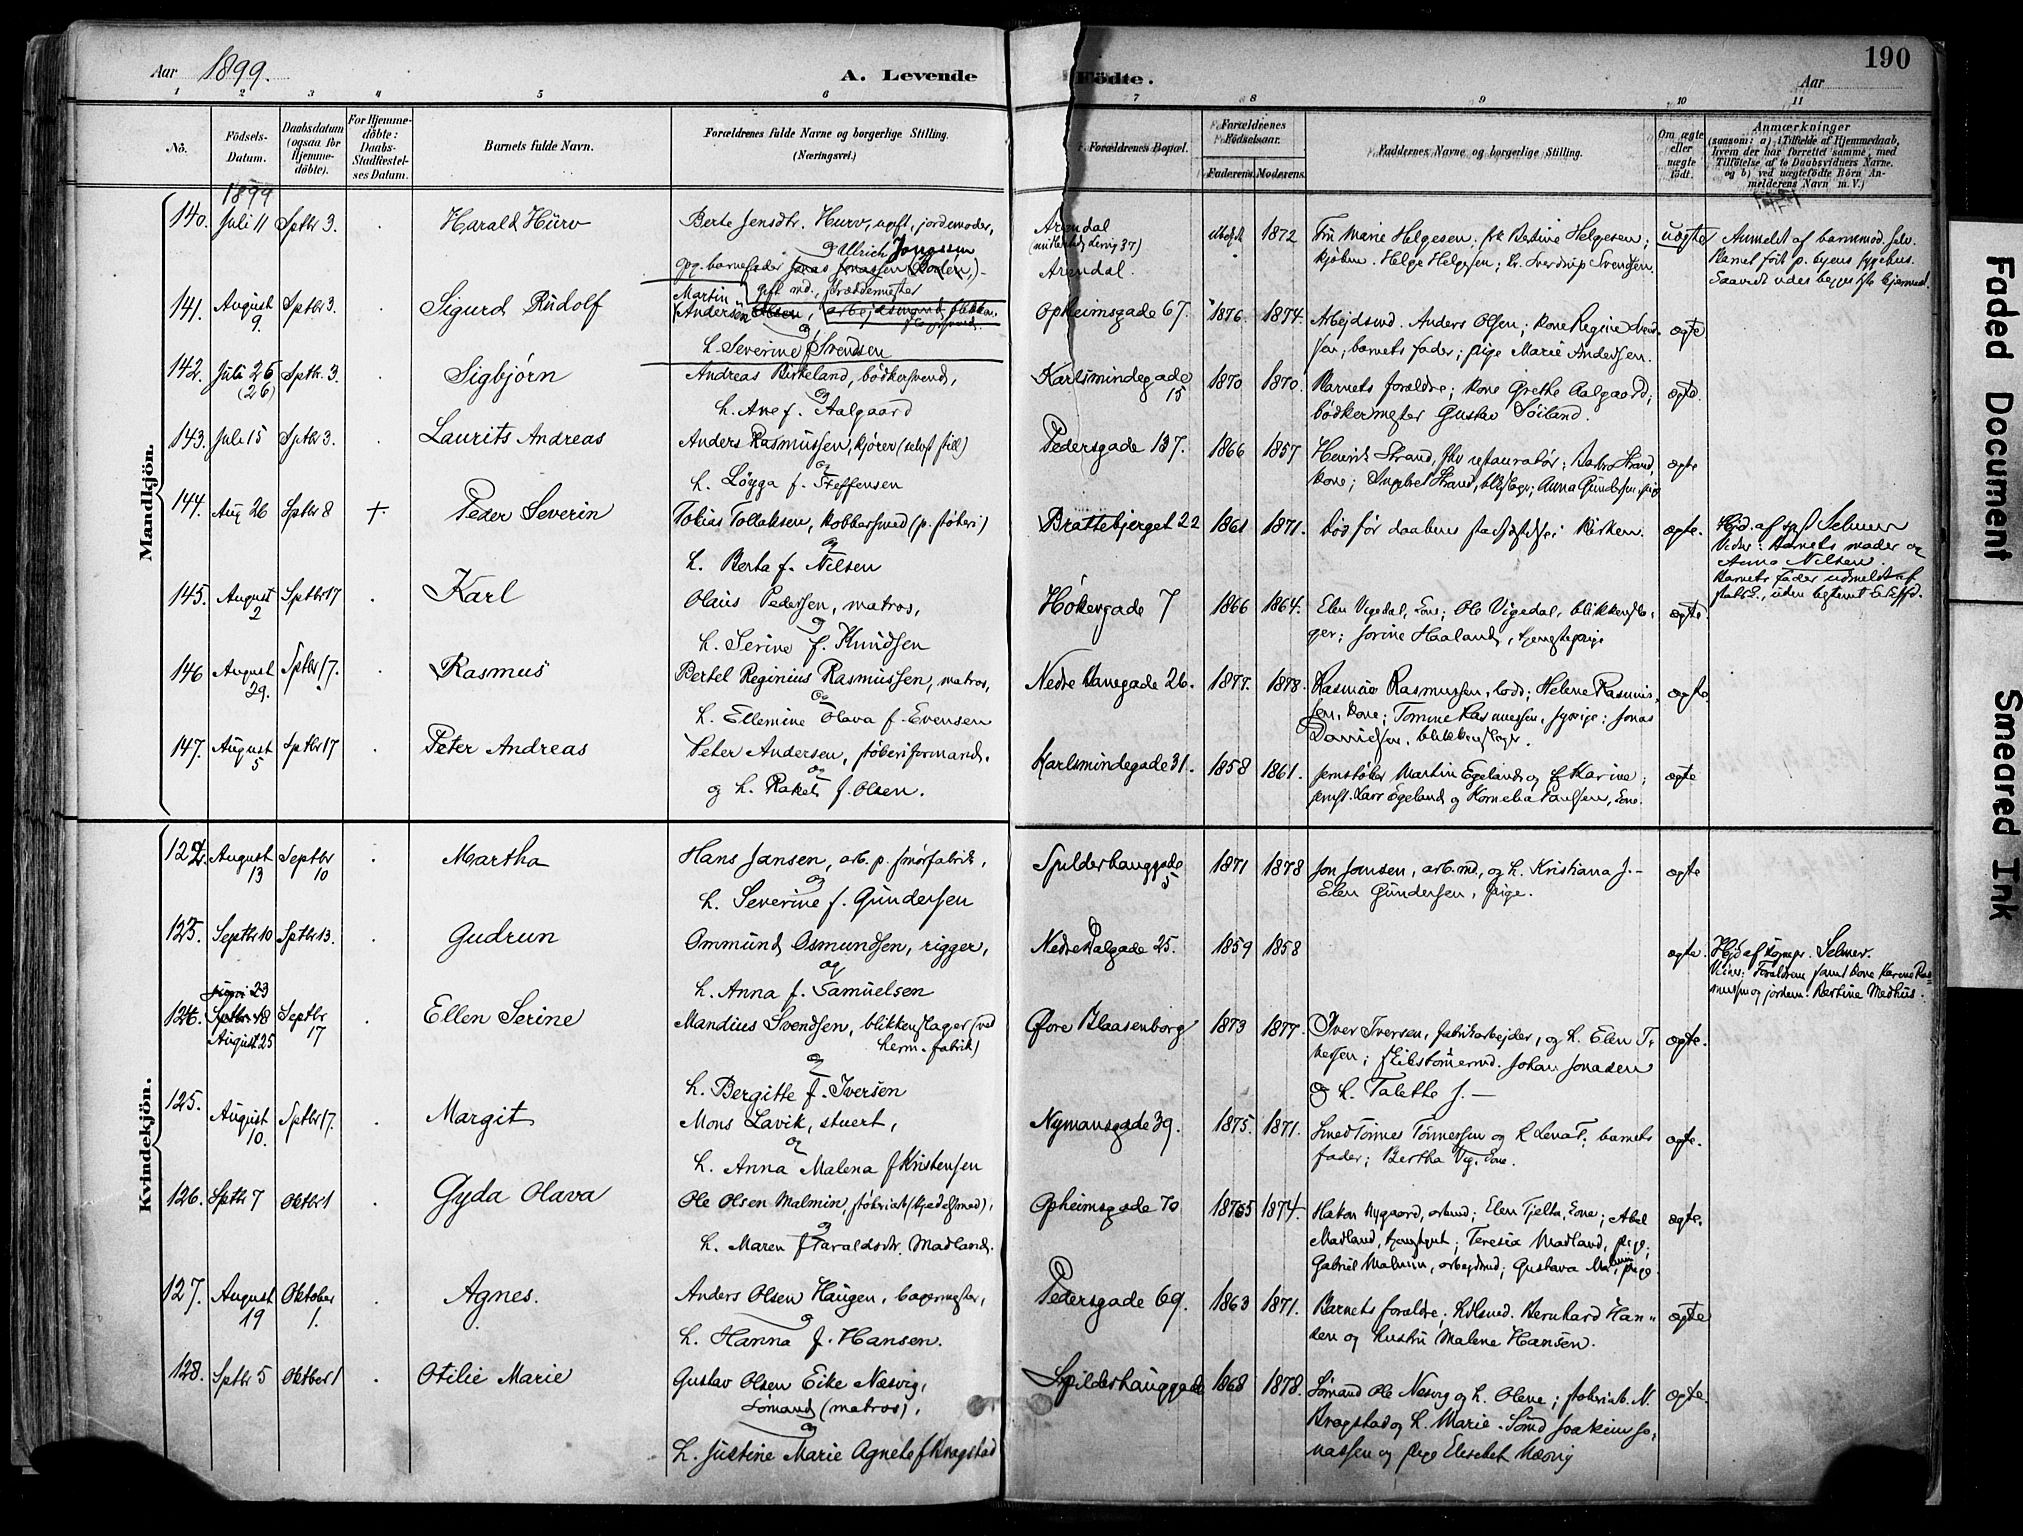 Aar 1899.
A. Levende
Födte.
Aar
190
1 2 3 4 5 6 7 8 9 10 11
Nö.
Födsels-Datum.
Daabsdatum (ogsaa för Hjemme-döbte).
For Hjemme-döbte: Daabs-Stadfæstel-ses Datum.
Barnets fulde Navn.
Forældrenes fulde Navne og borgerlige Stilling.
(Næringsvei.)
Forældrenes Bopæl.
Forældrenes Födselsaar.
Faderens. Moderens.
Faddernes Navne og borgerlige Stilling.
Om ægte eller uægte födt.
Anmærkninger
(saasom: a) i Tilfælde af Hjemmedaab,
hvem der har forrettet samme, med
Tilföielse af to Daabsvidners Navne,
og b) ved uægtefödte Börn An-
melderens Navn m. V.)
Mandkjön.
1899
140. Juli 11 Sptbr 3. Harald Hurv
Berte Jensdtr. Hurv, ugift, jordemoder,
og Ullrich Jonassen
opg. barnefader
Arendal
Arendal.
1872
Fru Marie Helgesen; frk Bertine Helgesen;
kjøbm. Helge Helgesen; Dr. Sverdrup Svendsen.
uægte
Anmeldt af barnmod. selv.
141. August 9 Sptbr 3. Sigurd Rudolf
Martin Andersen
og
h. Severine f. Svendsen
Opheimsgade 67. 1876. 1874.
Arbejdsmd. Anders Olsen; kone Regine Svend-
sen; barnets fader; pige Marie Andersen.
ægte
142. Juli 26 (26) Sptbr. 3. Sigbjørn
Andreas Birkeland, bødkersvend,
og
h. Ane f. Aalgaard
Karlsmindegade 15 1870 1870.
Barnets forældre; kone Grethe Aalgaard;
bødkermester Gustav Søiland.
ægte.
143. Juli 15 Sptbr 3. Laurits Andreas
Anders Rasmussen, kjører (
og
h. Løyga f. Steffensen
Pedersgade 137. 1866 1857
Henrik Strand,
kone; Ingebr Strand, ; Anna Gundersen, pige
ægte
144. Aug 26 Sptbr 8 + Peder Severin
Tobias Tollaksen, kobbersmed (p. støberi)
og
h. Berta f. Nilsen
Brattebjerget 22 1861 1871.
Død før daabens stadfæstelse i Kirken.
ægte.
Hjd. af spr Selmer
Vidner: Barnets moder og
Anna Nilsen.
Barnets fader udmeldt af
145. August 2 Sptbr 17 Karl
Olaus Pedersen, matros,
og
h. Serine f. Knudsen
Høkergade 7 1866 1864.
Elen Vigedal, kone; Ole Vigedal, blikkensla-
ger; Jorine Haaland, tjenestepige
ægte
146 August 29. Sptbr 17. Rasmus
Bertel Reginius Rasmussen, matros,
og
h. Ellemine Olava f. Evensen
Nedre Banegade 26. 1877. 1878.
Rasmus Rasmussen, lods; Helene Rasmus-
sen, kone; Tomine Rasmussen, sypige; Jonas
Danielsen, blikkenslager.
ægte
147. August 5 Sptbr 17 Peter Andreas
Peter Andersen, støberiformand,
og
og h. Rakel f. Olsen.
Karlsmindegade 31. 1858 1861.
Jernstøber Martin Egeland og h. Karine;
jernst. Lars Egeland og Kornelia Paulsen, kone.
ægte
Kvindekjön.
122. August 13 Septbr 10 Martha
Hans Jansen, arb. p. smørfabrik,
og
h. Severine f. Gundersen
Spilderhauggade 5 1871 1878
Jon Jonsen, arb.md, og h. Kristiana J. —
Elen Gundersen, pige.
ægte
123. Septbr 10 Sptbr 13. Gudrun
Ommund Osmundsen, rigger,
og
h. Anna f. Samuelsen
Nedre Dalgade 25. 1859 1858
ægte.
Hjd af Selmer.
Vidner: Forældrene samt kone Karine Ras-
mussen og jordem. Bertine Medhus.
124. August 25 Septbr 17 Ellen Serine
Mandius Svendsen, blikkenslager (ved
herm. fabrik)
og
h. Bergitte f. Iversen
Øvre Blaasenborg 1873 1877.
Iver Iversen, fabrikarbejder, og h. Elen I-
versen; skibstømrmd. Johan Jonasen
og h. Talette J. —
ægte.
125. August 10. Sptbr 17. Margit
Mons Lavik, stuert,
og
h. Anna Malena f Kristensen
Nymansgade 39. 1875. 1871.
Smed Tønnes Tønnessen og h Lena T; barnets
fader; Bertha Vig, kone.
ægte.
126. Sptbr 7 Oktbr 1 Gyda Olava
Ole Olsen Malmin, støberiarb (kjedelsmed),
og
h. Maren f Taraldsdtr. Madland.
Opheimsgade 70 1875 1874.
Hakon Nygaard, arbmd; Elen Tjelta, kone; Abel
Madland, ; Teresia Madland, pige;
Gabriel Malmin, arbejdsmd; Gustava Malmin, pige.
ægte.
127. August 19 Oktober 1. Agnes.
Anders Olsen Haugen, bagermester,
og
h. Hanna f. Hansen.
Pedersgade 69. 1863 1871.
Barnets forældre; Bernhard Han-
sen og hustru Malene Hansen.
ægte
128. Sptbr 5 Oktber 1 Otilie Marie
Gustav Olsen Eike Næsvig,
Sømand (matros),
og
h. Justine Marie Agnete f Kragstad
Spilderhauggade 1868 1878.
Sømand Ole Nesvig og h. Olene; støberiarb. N.
Kragstad og h. Marie. Sømd Joakim Jo-
nassen og pige Elisebet Næsvig
ægte.
Faded Document
Smeared Ink